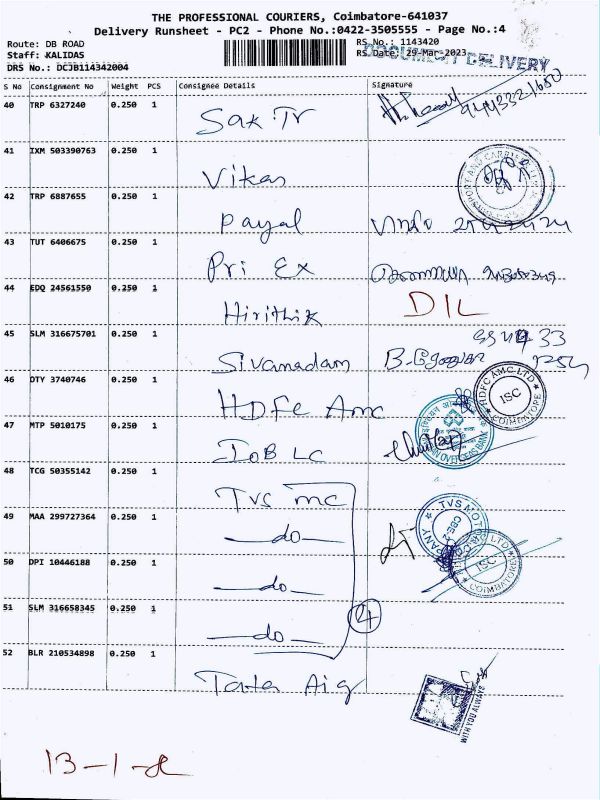 THE PROFESSIONAL COURIERS, Coimbatore-641037
Delivery Runsheet - PC2 - Phone No.:0422-3505555 - Page No.:4
Route: DB ROAD
RS No.: 1143420
Staff: KALIDAS
RS Date: 29-Mar-2023
DOCUMENT DELIVERY
DRS No.: DCJB114342004
S No Consignment No Weight PCS Consignee Details Signature
40 TRP 6327240 0.250 1 Sak Tr
41 IXM 503390763 0.250 1 Vikas
42 TRP 6887655 0.250 1 Payal
43 TUT 6406675 0.250 1 Pri Ex
44 EDQ 24561550 0.250 1 Hirithik DIL
45 SLM 316675701 0.250 1 Sivanadam
46 DTY 3740746 0.250 1 HDFC Amc
HDFC AMC LTD ISC COIMBATORE
47 MTP 5010175 0.250 1 IOB LC
48 TCG 50355142 0.250 1 TVS mc
49 MAA 299727364 0.250 1 —do—
TVS MOTOR COMPANY
50 DPI 10446188 0.250 1 —do—
ISC COIMBATORE
51 SLM 316658345 0.250 1 —do— 4
52 BLR 210534898 0.250 1 Tata Aig
WITH YOU ALWAYS
13-1-